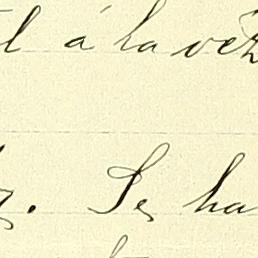 á la vez
. Se ha